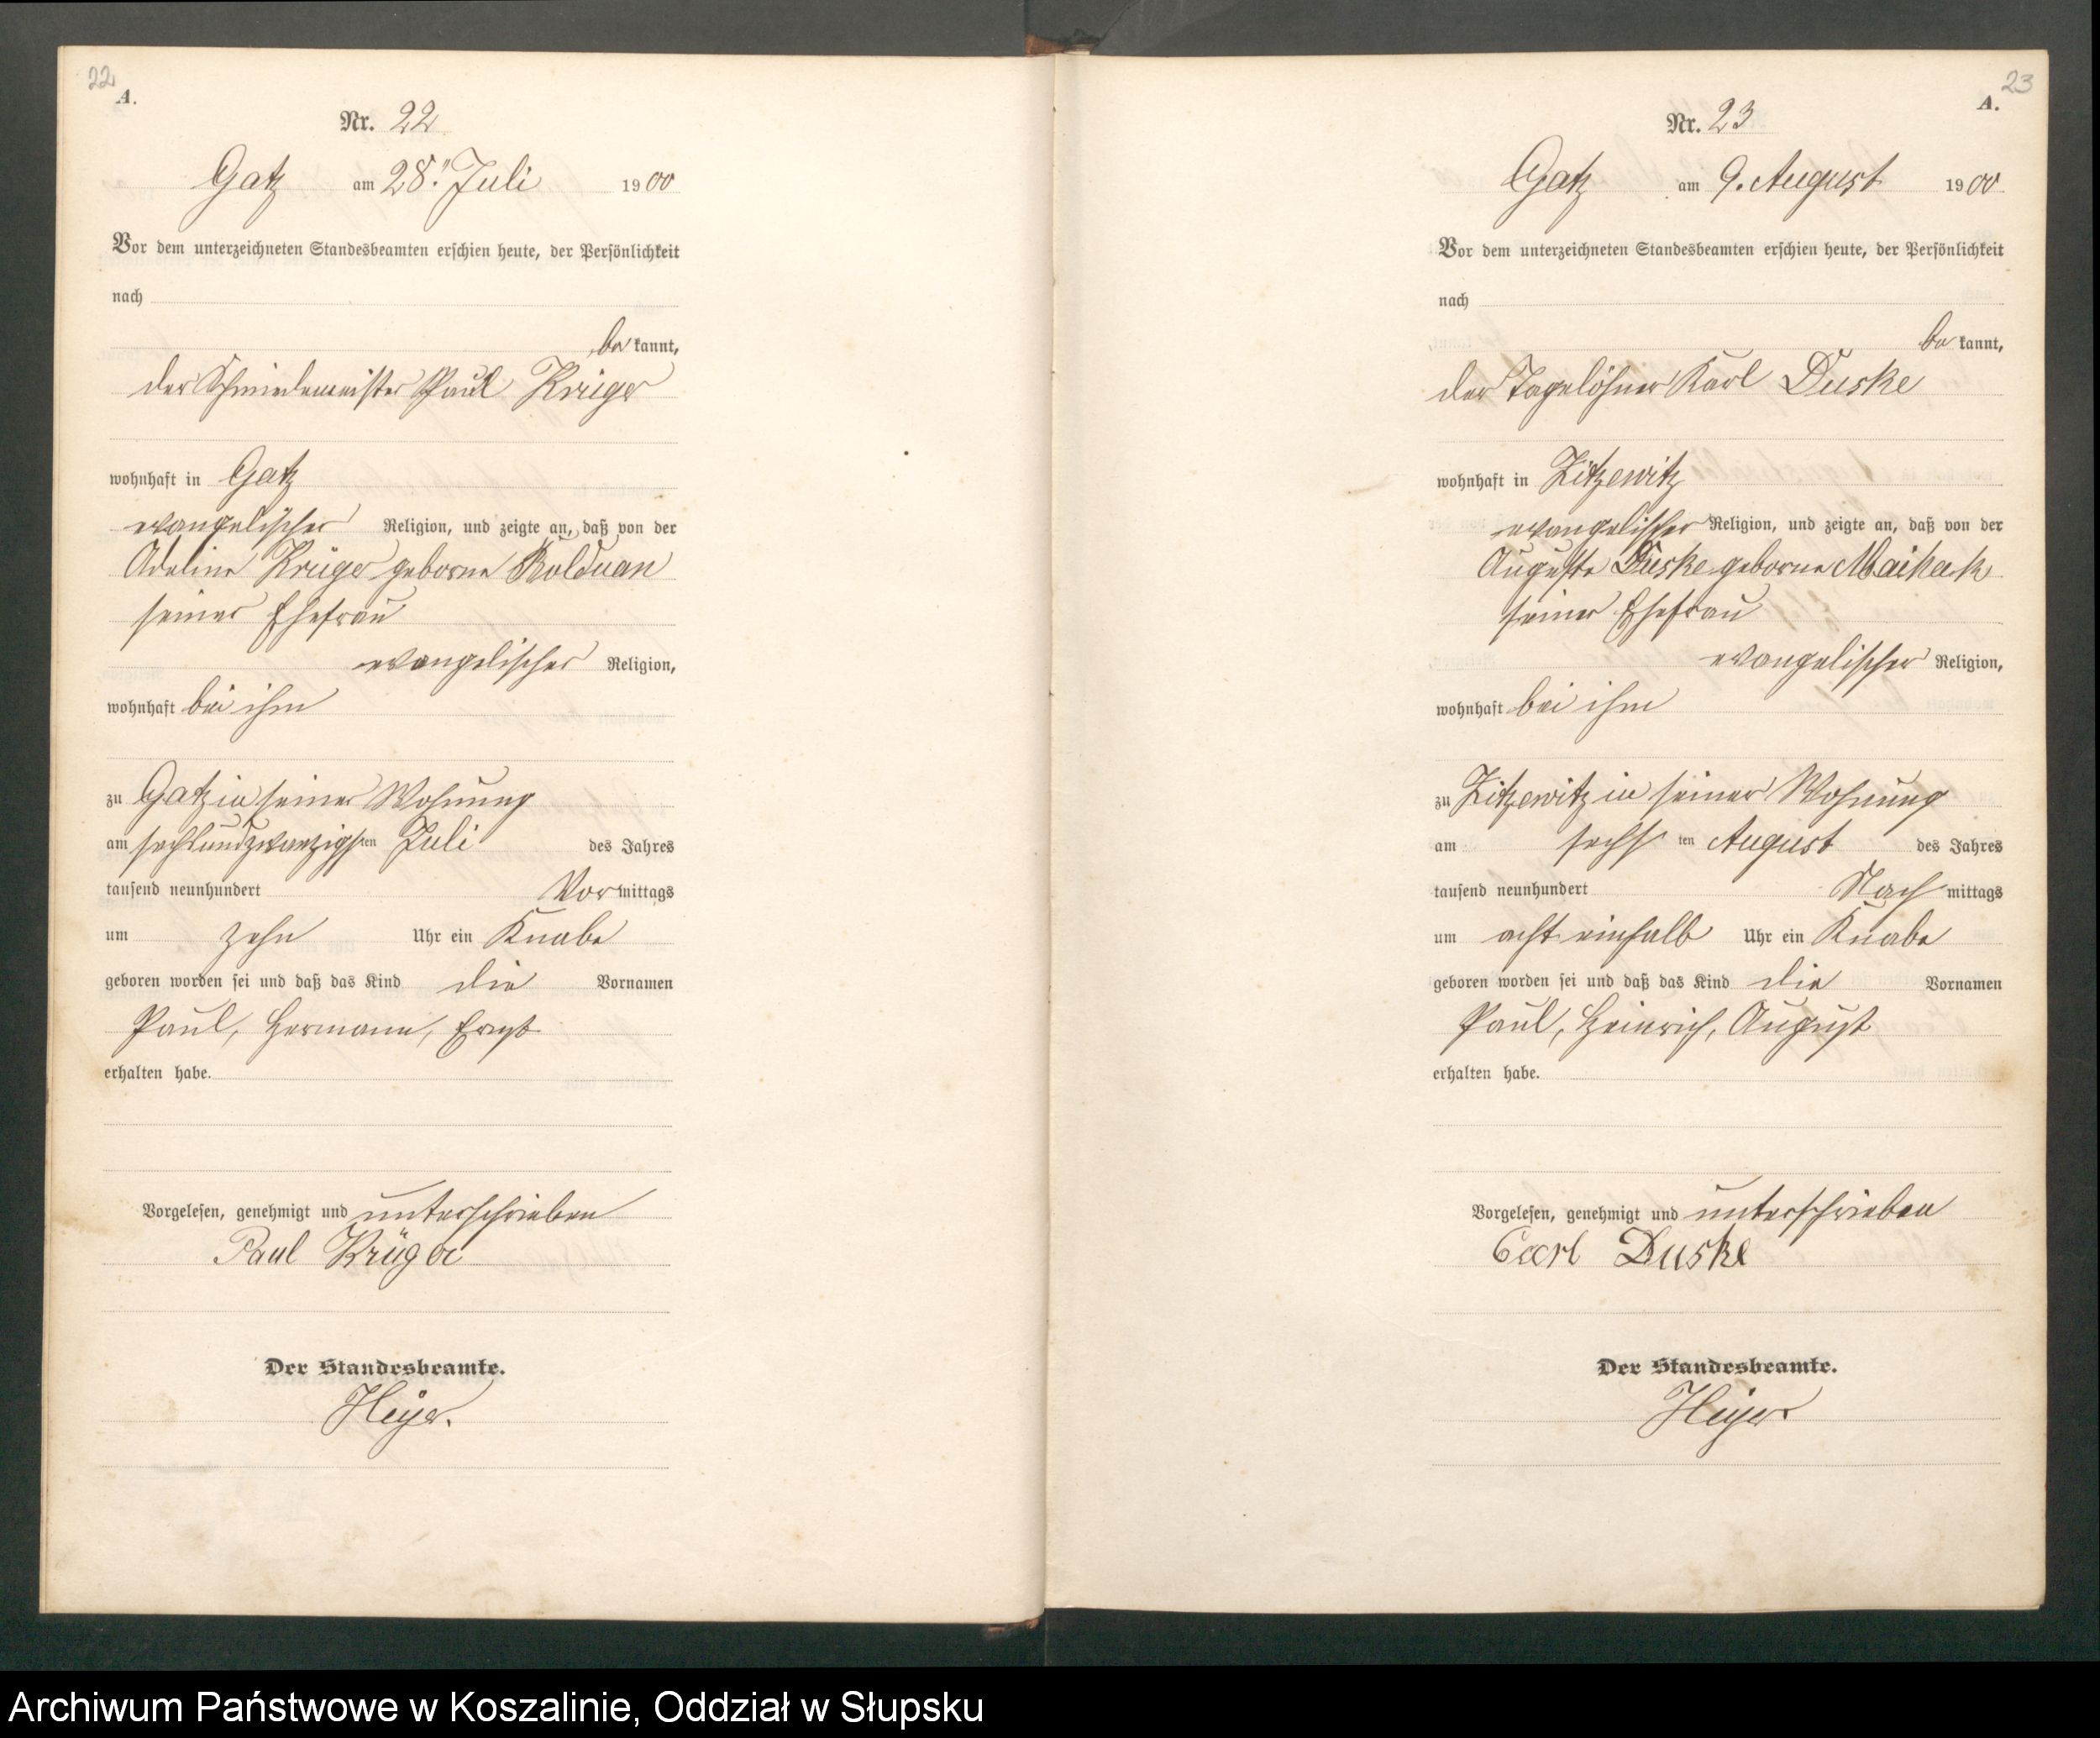 22
A.
Nr. 22
Gatz am 28ten Juli 1900
Vor dem unterzeichneten Standesbeamten erschien heute, der Persönlichkeit
nach
be kannt,
der Schmiedemeister Paul Krüger
wohnhaft in Gatz
evangelischer Religion, und zeigte an, daß von der
Adeline Krüger geborne Rolduan
seiner Ehefrau
evangelischer Religion,
wohnhaft bei ihm
zu Gatz in seiner Wohnung
am sechsundzwanzigsten Juli des Jahres
tausend neunhundert Vormittags
um zehn Uhr ein Knabe
geboren worden sei und daß das Kind die Vornamen
Paul, Hermann, Ernst
erhalten habe.
Vorgelesen, genehmigt und unterschrieben
Paul Krüger
Der Standesbeamte.
Heyer.
23
A.
Nr. 23
Gatz am 9. August 1900
Vor dem unterzeichneten Standesbeamten erschien heute, der Persönlichkeit
nach
be kannt,
der Tagelöhner Karl Duske
wohnhaft in Zitzewitz
evangelischer Religion, und zeigte an, daß von der
Auguste Duske geborne Maihack
seiner Ehefrau
evangelischer Religion,
wohnhaft bei ihm
zu Zitzewitz in seiner Wohnung
am sechs ten August des Jahres
tausend neunhundert Nach mittags
um acht einhalb Uhr ein Knabe
geboren worden sei und daß das Kind die Vornamen
Paul, Heinrich, August
erhalten habe.
Vorgelesen, genehmigt und unterschrieben
Carl Duske
Der Standesbeamte.
Heyer
Archiwum Państwowe w Koszalinie, Oddział w Słupsku